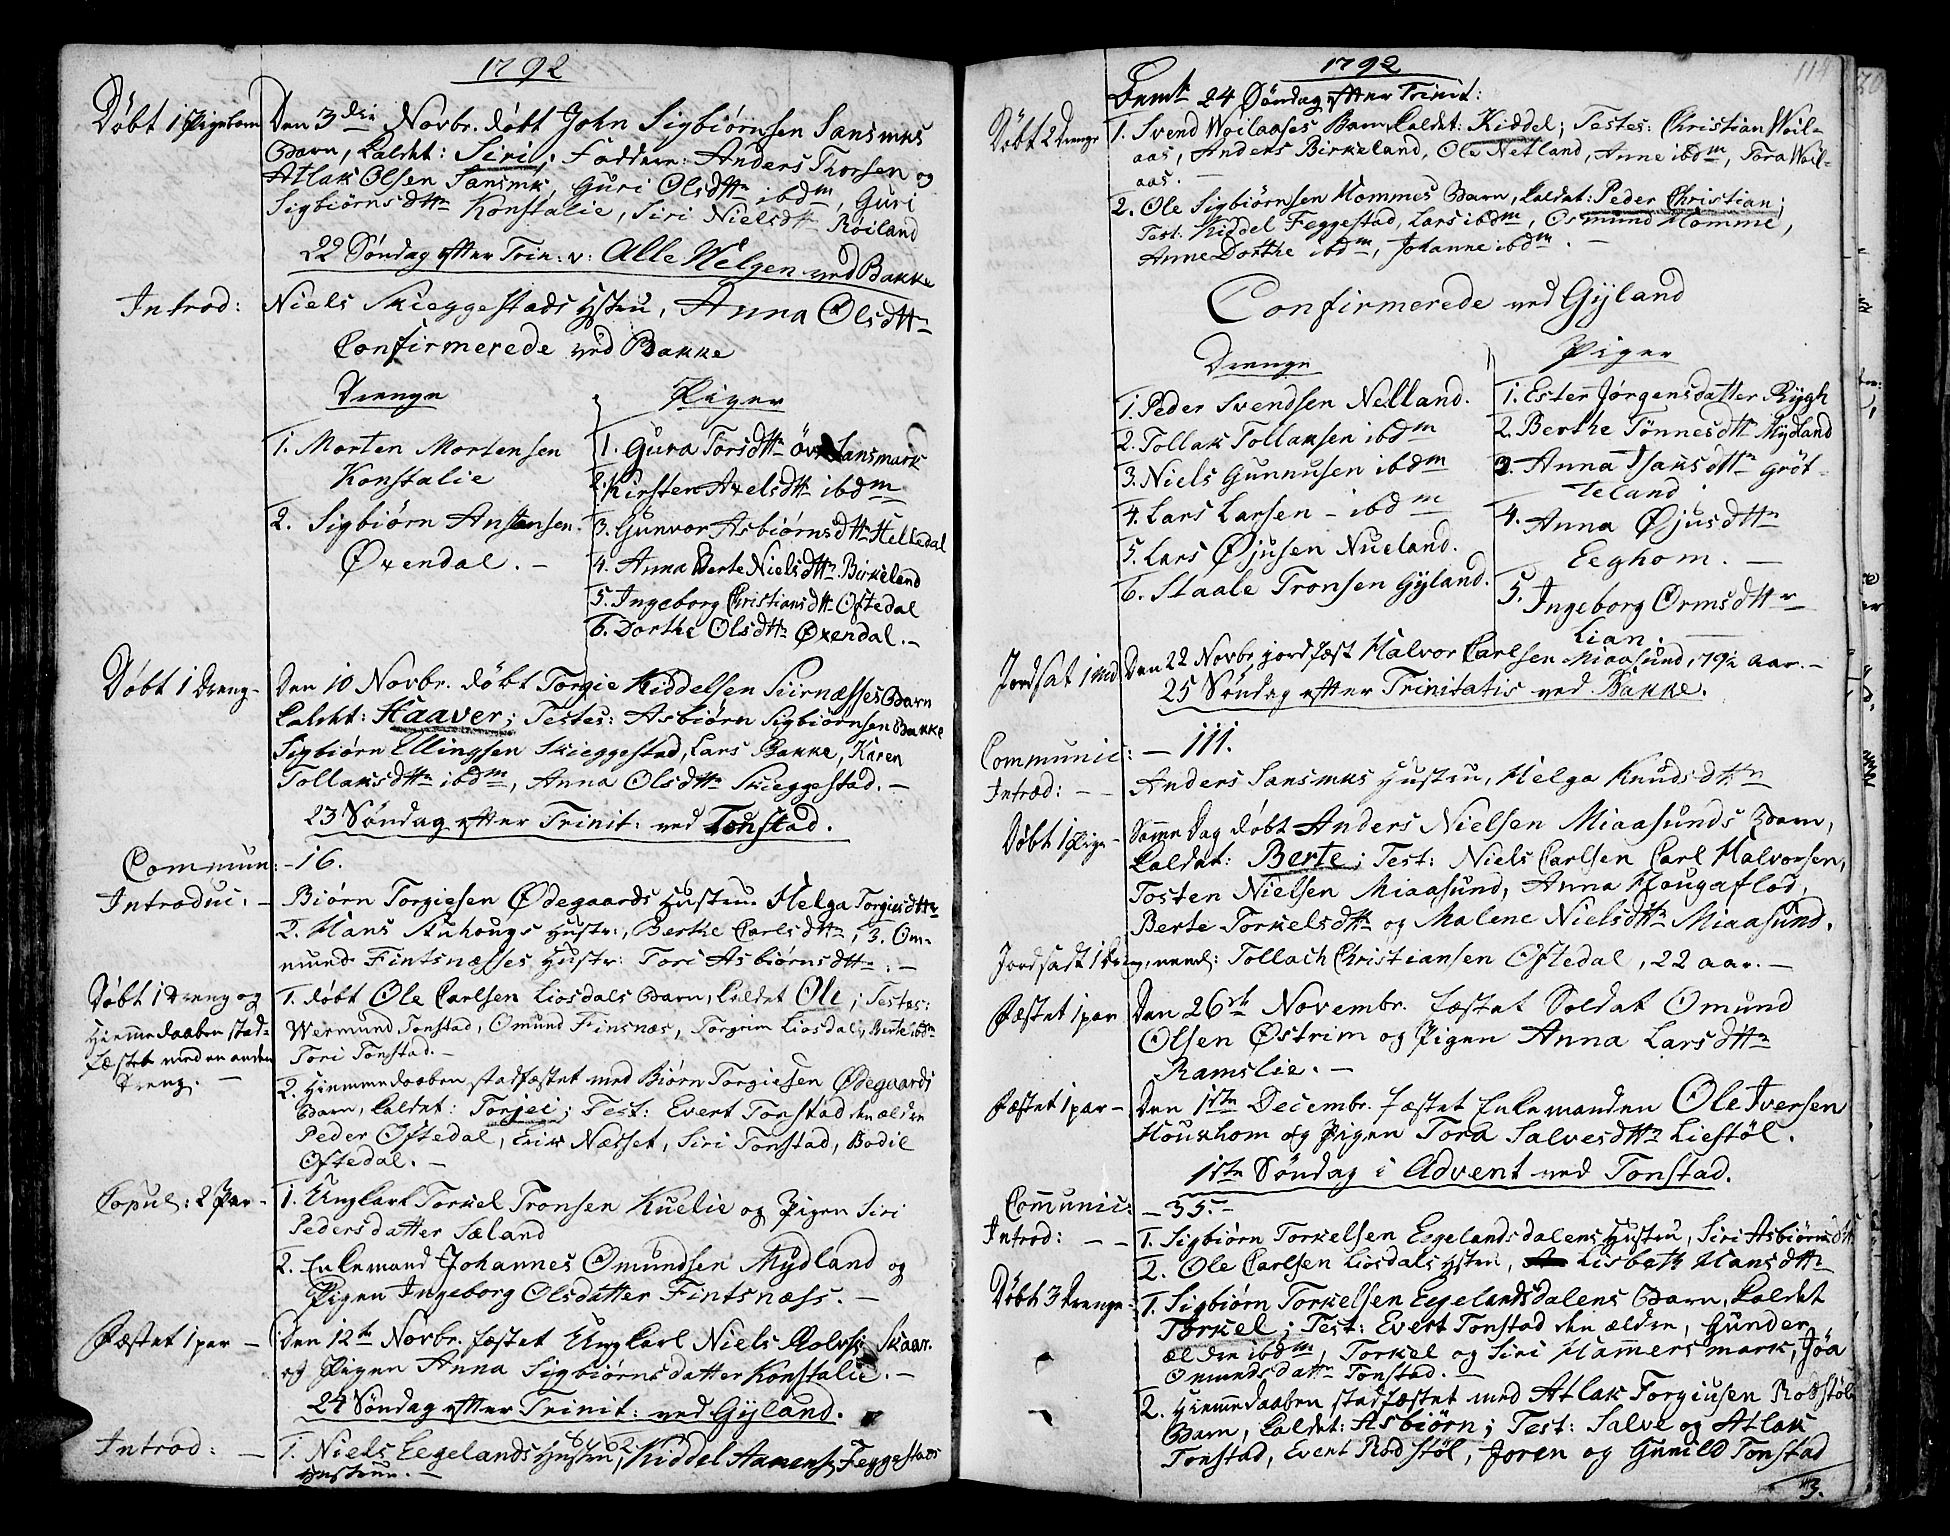 1792
Döbt 1 Pigebarn
Den 3die Novbr. döbt John Sigbiörnsen Sansmks
Barn, kaldet: Siri; Faddere: Anders Thorsen og
Atlak Olsen Sansmk, Guri Olsdttr ibdm, Guri
Sigbiörnsdttr Konstalie, Siri Nielsdtt Röiland
22 Söndag efter Trin: v: Alle Helgen ved Bakke
Introd: Niels Skieggestads Hstru, Anna Olsdttr
Confirmerede ved Bakke
Drenge
1. Morten Mortensen
Konstalie
2. Sigbiörn Anstensen
Øxendal. -
Piger
1. Gura Torsdttr Sansmark
2. Kirsten Axelsdtt ibdm
3. Gunvor Asbiörnsdttr Helledal
4. Anna Berte Nielsdttr Birkeland
5. Ingeborg Christiansdtt Oftedal
6. Dorthe Olsdttr Øxendal. -
Döbt 1 Dreng -
Den 10 Novbr. döbt Torgie Kiddelsen Barn
kaldet: Haaver; Testes: Asbiörn Sigbiörnsen Bakke
Sigbiörn Ellingsen Skieggestad, Lars Bakke, Karen
Tollaksdttr ibdm, Anna Olsdttr Skieggestad. -
23 Söndag efter Trinit: ved Tonstad.
Commun: - 16.
Introduc: - Biörn Torgiesen Ødegaards Hustru Helga Torgiesdttr
2. Hans Hustr:, Berthe Carlsdttr, 3. Om-
mund Fintsnæsses Hustr: Tori Asbiörnsdttr. -
Döbt 1 Dreng og
Hiemmedaaben stad-
fæstet med en anden
Dreng. -
1. döbt Ole Carlsen Liosdals Barn, kaldet Ole; Testes:
Wermund Tonstad, Omund Finsnæs, Torgrim Liosdal, Berte ibdm
Tori Tonstad. -
2. Hiemmedaaben stadfæstet med Biörn Torgiesen Ødegaards
Barn, kaldet: Torjei; Test: Evert Tonstad den ældre
Peder Oftedal, Næsset, Siri Tonstad, Bodil
Oftedal. -
Copul: 2 Par -
1. Ungkarl Torkel Tronsen Kuelie og Pigen Siri
Pedersdatter Sæland
2. Enkemand Johannes Omundsen Mydland og
Pigen Ingeborg Olsdatter Fintsnæss -
Fæstet 1 par -
Den 12te Novbr. fæstet Ungkarl Niels Skaar.
og Pigen Anna Sigbiörnsdatter Konstalie. -
24 Söndag efter Trinit: ved Gyland.
Introd: -
1. Niels Eegelands Hustru, 2 Kiddel Feggestads
Hustrue. -
1792
114
24 Söndag efter Trinit:
Döbt 2 Drenge
1. Svend Woilaases Barn kaldet: Kiddel; Testes: Christian Woil-
aas, Anders Birkeland, Ole Netland, Anne ibdm, Tora Woil-
aas. -
2. Ole Sigbiörnsen Mommes Barn, kaldet: Peder Christian;
Test: Kiddel Feggestad, Lars ibdm, Osmund Momme,
Anne Dorthe ibdm, Johanne ibdm. -
Confirmerede ved Gyland
Drenge
1. Peder Svendsen Nelland.
2. Tollak Tollaksen ibdm
3. Niels Gunnusen ibdm
4. Lars Larsen - ibdm
5. Lars Øjusen Nueland.
6. Staale Tronsen Gyland.
Piger
1. Ester Jörgensdatter Rygh
2. Berthe Tönnesdtt Mydland
3. Anna Isaksdttr Gröt-
teland
4. Anna Øjusdttr
Eeghom. -
5. Ingeborg Ormsdttr
Lian. -
Jordsat 1
Den 22 Novbr jordfæst Halvor Carlsen Miaasund, 79½ aar. -
25 Söndag efter Trinitatis ved Bakke.
Communic: - 111.
Introd: - - Anders Sansmks Hustru, Helga Knudsdttr
Döbt 1 Pige -
Samme Dag döbt Anders Nielsen Miaasunds Barn,
kaldet: Berte; Test: Niels Carlsen Carl Halvorsen,
Tosten Nielsen Miaasund, Anna Hougaflod,
Berte Torkelsdttr og Malene Nielsdttr Miaasund.
Jordsadt 1 nemd: Tollach Christiansen Oftedal, 22 aar. -
Fæstet 1 par
Den 26de Novembr. fæstet Soldat Omund
Olsen Østrim og Pigen Anna Larsdttr
Ramslie. -
Fæstet 1 par -
Den 1ste Decembr. fæstet Enkemanden Ole Iversen
Houkhom og Pigen Tora Salvesdttr Liestöl.
1ste Söndag i Advent ved Tonstad.
Communic: - 35. -
Introd: - -
1. Sigbiörn Torkelsen Eegelandsdalens Hustru, Siri Asbiörnsdtt
2. Ole Carlsen Liosdals Hstru, Lisbeth Hansdttr
Döbt 3 Drenge -
1. Sigbiörn Torkelsen Egelandsdalens Barn, kaldet
Torkel; Test: Evert Tonstad den ældre, Gunder
ældre ibdm, Torkel og Siri Hammersmark, Jöa
Omundsdattr Tonstad. -
2. Hiemmedaaben stadfæstet med Atlak Torgiusen Rodstöls
Barn, kaldet: Asbiörn; Test: Salve og Atlak
Tonstad, Evert Rodstöl, Joren og Gunild Tonstad
3.